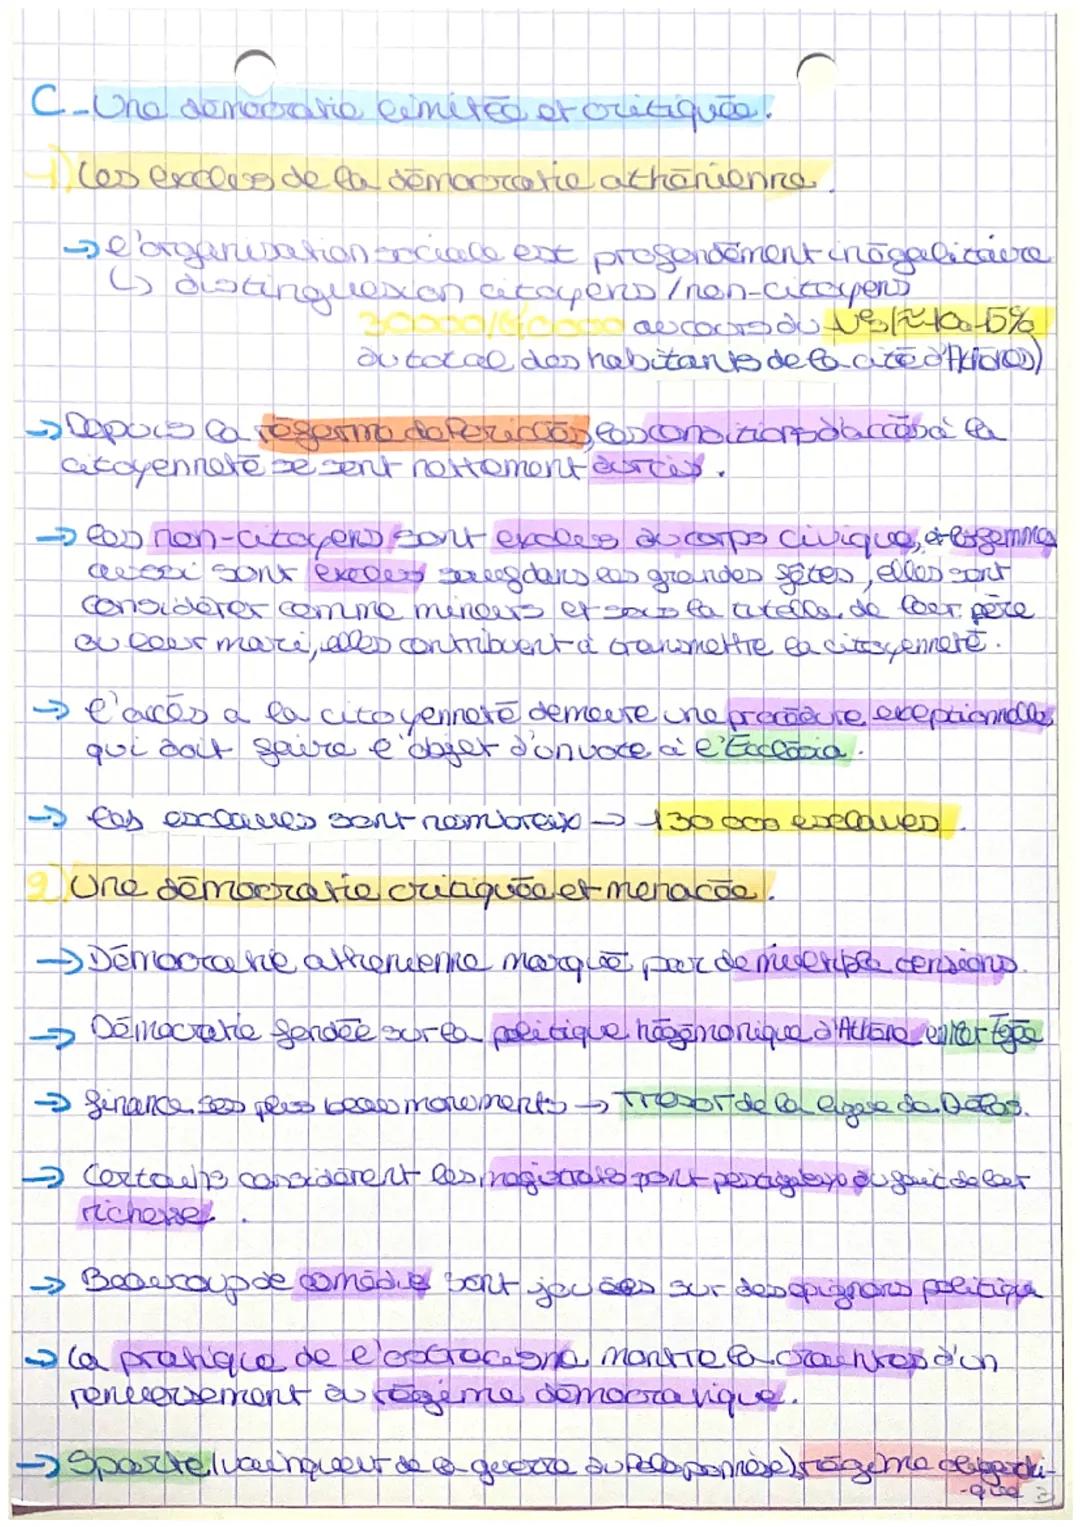 C- Une démocratie limitée et critiquée.
1) Les exclus de la démocratie athénienne.
→ l'organisation sociale est profondément inégalitaire
↳ distinguexion citoyens / non-citoyens
30000/40000 au cours du Ve s (≈ 10 à 15%
du total des habitants de la cité d'Athènes)
→ Depuis la réforme de Périclès, les conditions d'accès à la
citoyenneté se sont nettement durcis.
→ Les non-citoyens sont exclus du corps civique, et les femmes
aussi sont exclues sauf dans les grandes fêtes, elles sont
considérer comme mineurs et sous la tutelle de leur père
ou leur mari, elles contribuent à transmettre la citoyenneté.
→ l'accès à la citoyenneté demeure une procédure exceptionnelle
qui doit faire l'objet d'un vote à l'Ecclésia.
→ Les esclaves sont nombreux → 130 000 esclaves.
2) Une démocratie critiquée et menacée.
→ Démocratie athénienne marqué par de multiple tensions.
→ Démocratie fondée sur la politique hégémonique d'Athène en Mer Egée
→ finance ses plus beaux monuments → Trésor de la ligue de Délos.
→ Certains considèrent les magistrats sont privilégiés du fait de leur
richesse.
→ Beaucoup de comédies sont jouées sur des opignons politique
→ La pratique de l'ostracisme montre la craintes d'un
renversement du régime démocratique.
→ Sparte (vainqueur de la guerre du Péloponnèse) régime oligarchi-
-que